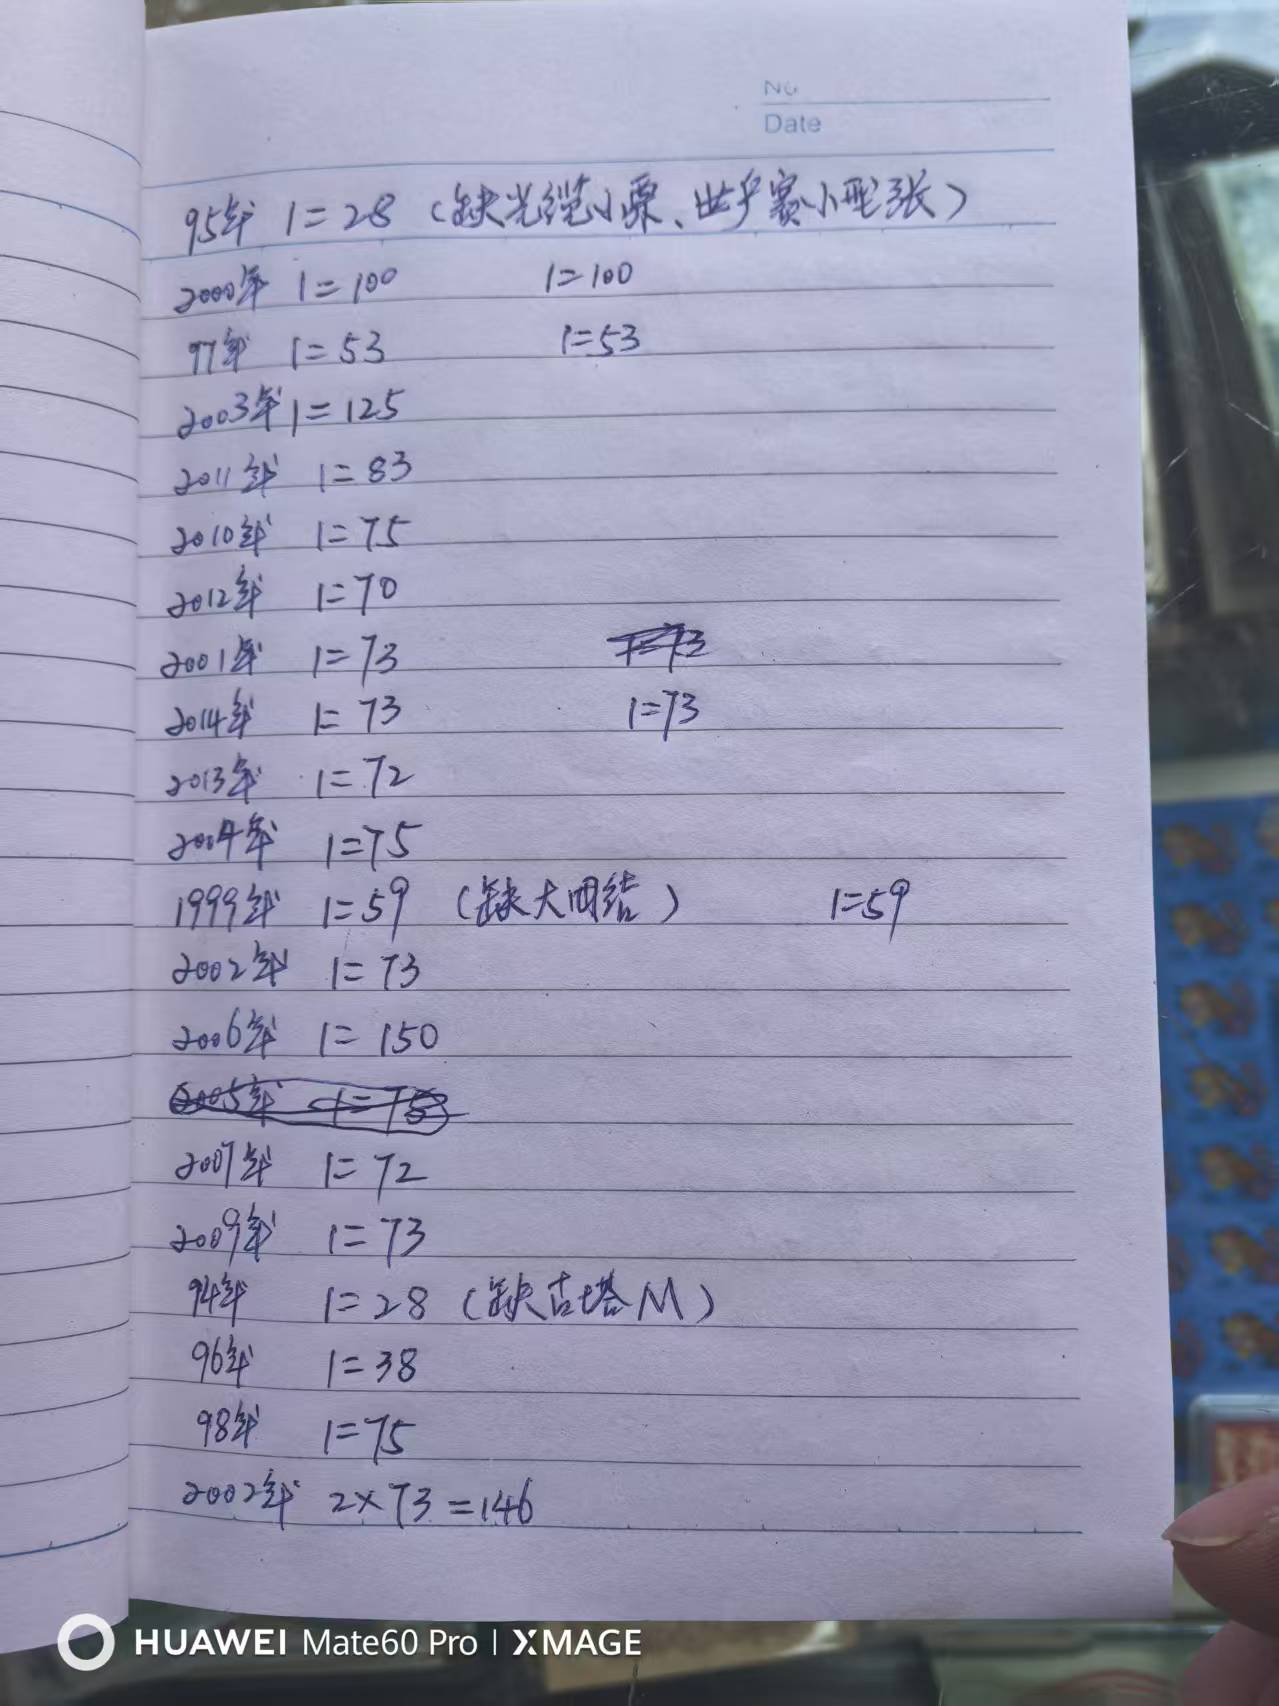 No
Date
95年 1=28 (缺光缆小票、世乒赛小型张)
2000年 1=100 1=100
97年 1=53 1=53
2003年 1=125
2011年 1=83
2010年 1=75
2012年 1=70
2001年 1=73 1=73
2014年 1=73 1=73
2013年 1=72
2004年 1=75
1999年 1=59 (缺大团结) 1=59
2002年 1=73
2006年 1=150
2005年 1=75
2007年 1=72
2009年 1=73
94年 1=28 (缺古塔M)
96年 1=38
98年 1=75
2002年 2×73=146
HUAWEI Mate60 Pro | XMAGE